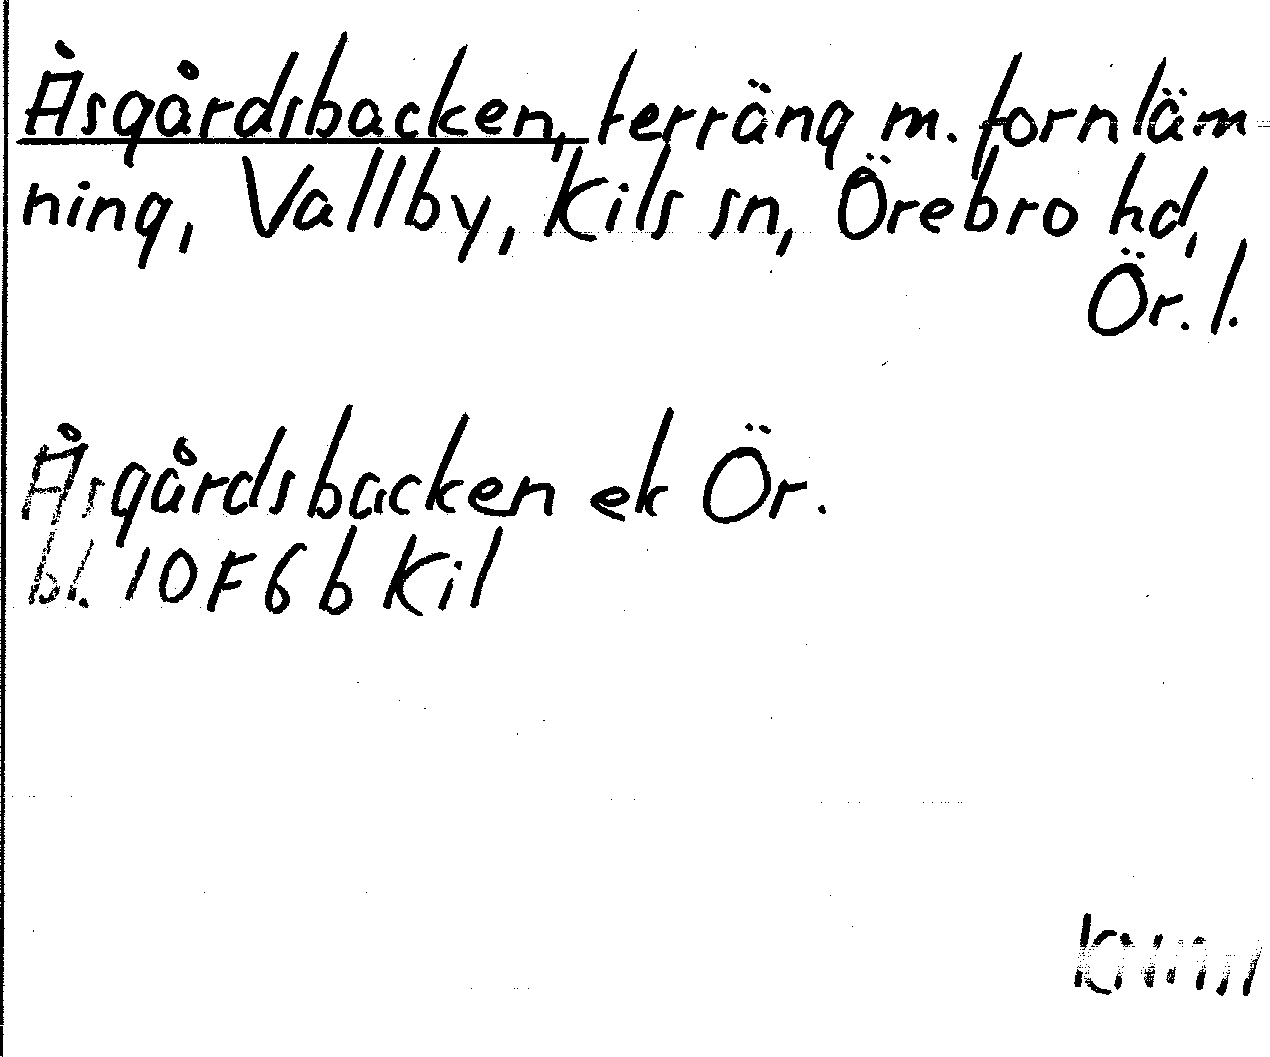 Åsgårdsbacken, terräng m. fornläm-
ning, Vallby, Kils sn, Örebro hd,
Ör. l.
Åsgårdsbacken ek Ör.
bl. 10F6b Kil